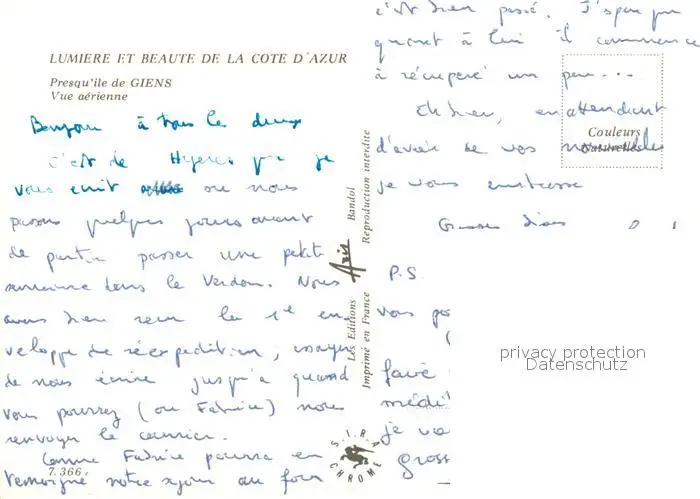 LUMIERE ET BEAUTE DE LA COTE D'AZUR
Presqu'ile de GIENS
Vue aérienne
Bonjour à tous les deux
C'est de Hyères que je
vous écrit ou nous
passons quelques jours avant
de partir passer une petite
semaine dans le Verdon. Nous
avons bien reçu la 1e en
veloppe de réexpédition,
de nous écrire jusqu'à quand
vous pourrez (ou Fabrice) nous
renvoyer le courrier.
Comme Fabrice pourra en
témoigné notre séjour au
7.366
Les Editions Aris Bandol
Imprimé en France Reproduction interdite
S.I.R.A.
CHROME
c'est bien passé. J'espère que
quant à lui il commence
à récupéré un peu...
Eh bien, en attendant
d'avoir de vos nouvelles
je vous embrasse
Grosses bises
Couleurs
Naturelles
P.S.
vous
faire
je
gross
privacy protection
Datenschutz